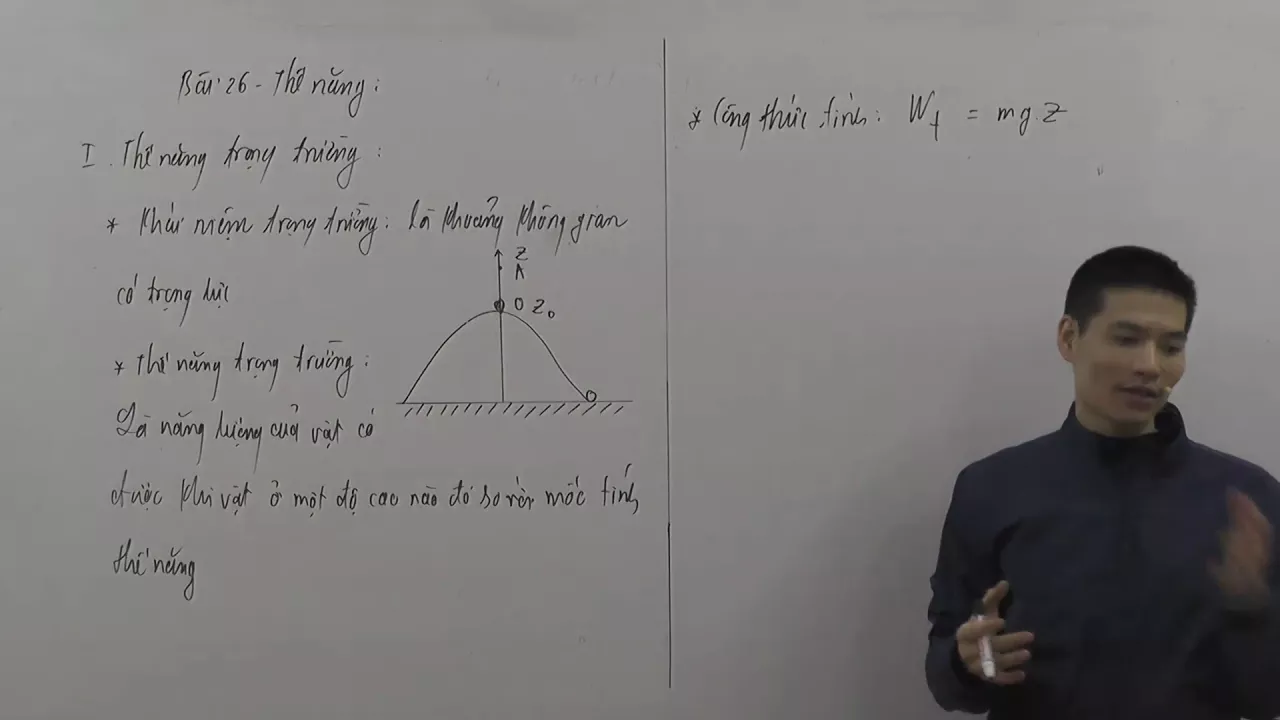 Bài 26 - Thế năng:
I. Thế năng trọng trường:
* Khái niệm trọng trường: là khoảng không gian
có trọng lực
* Thế năng trọng trường:
Là năng lượng của vật có
được khi vật ở một độ cao nào đó so với mốc tính
thế năng
z
A
O z₀
* Công thức tính: Wt = mg.z